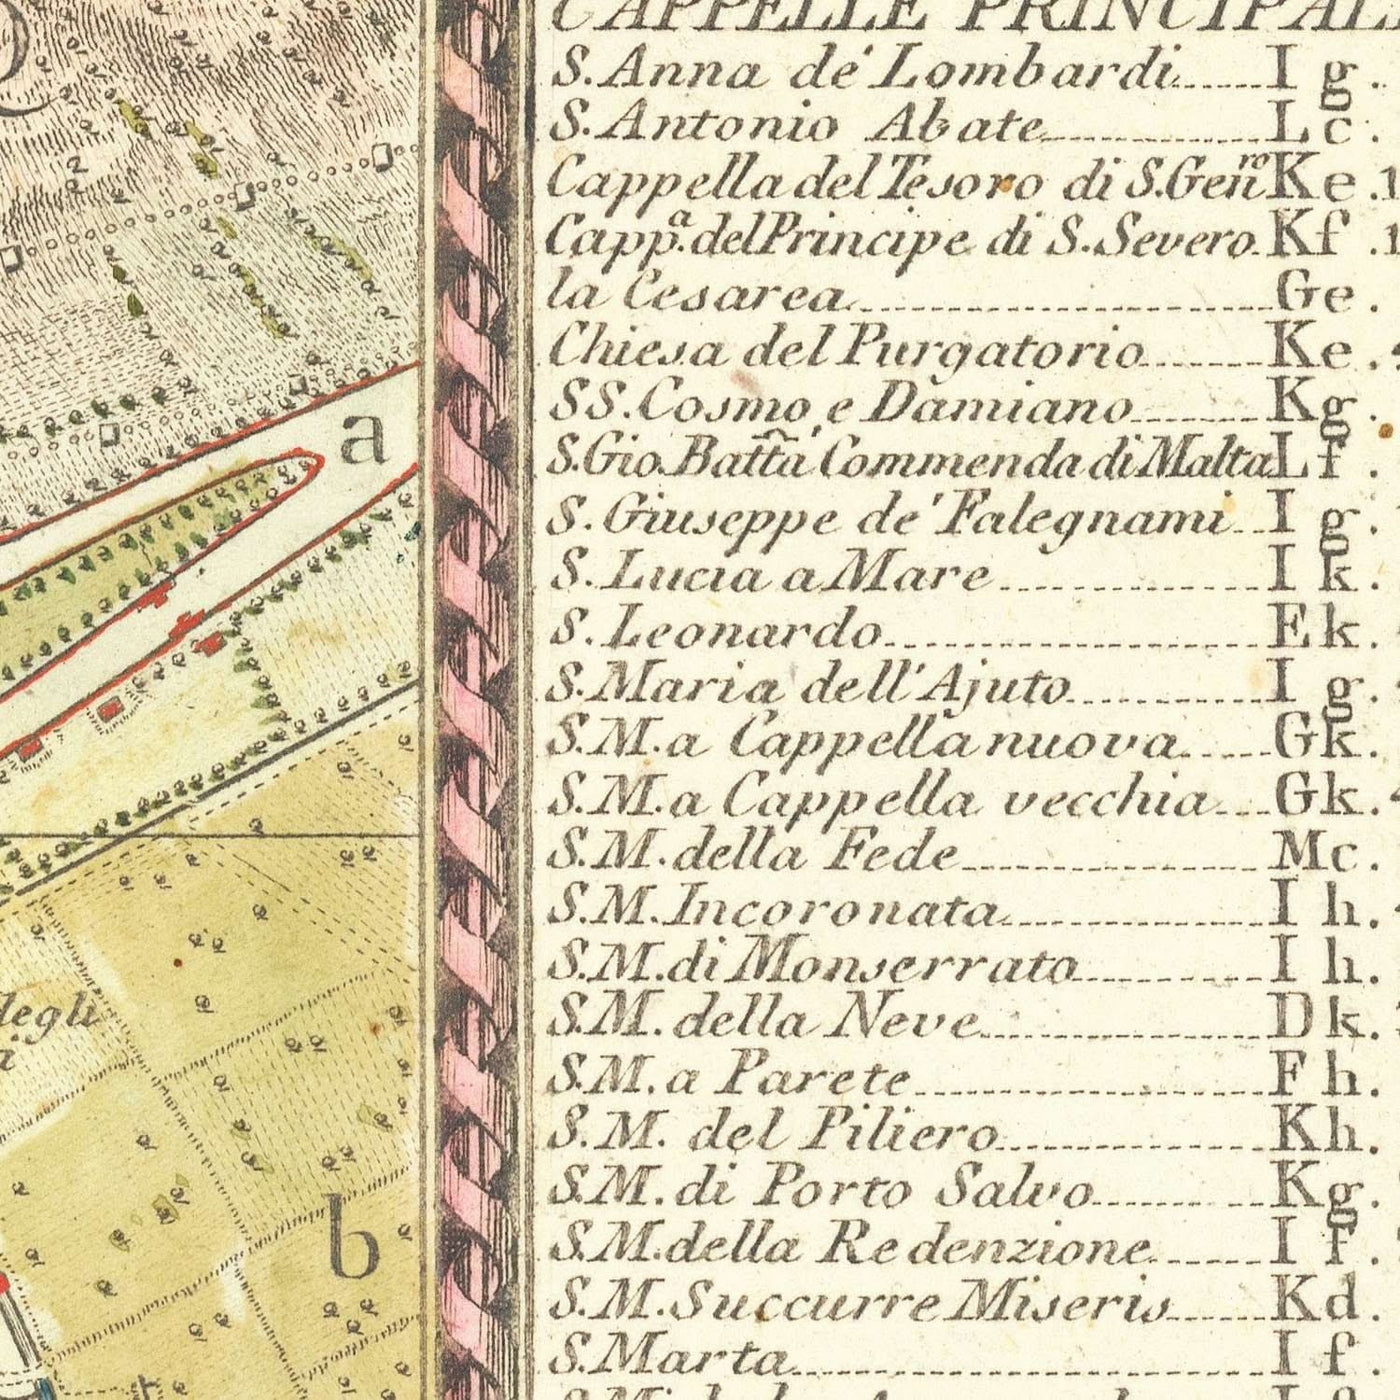 a
degli
b
CAPPELLE PRINCIPAL
S. Anna de' Lombardi I g.
S. Antonio Abate L c.
Cappella del Tesoro di S. Genro K e . 1
Cappa. del Principe di S. Severo K f . 1
la Cesarea G e .
Chiesa del Purgatorio K e .
SS. Cosmo, e Damiano K g .
S. Gio. Batta Commenda di Malta L f .
S. Giuseppe de' Falegnami I g .
S. Lucia a Mare I k .
S. Leonardo E k .
S. Maria dell' Ajuto I g .
S. M. a Cappella nuova G k .
S. M. a Cappella vecchia G k .
S. M. della Fede M c .
S. M. Incoronata I h .
S. M. di Monserrato I h .
S. M. della Neve D k .
S. M. a Parete F h .
S. M. del Piliero K h .
S. M. di Porto Salvo K g .
S. M. della Redenzione I f .
S. M. Succurre Miseris K d .
S. Marta I f .